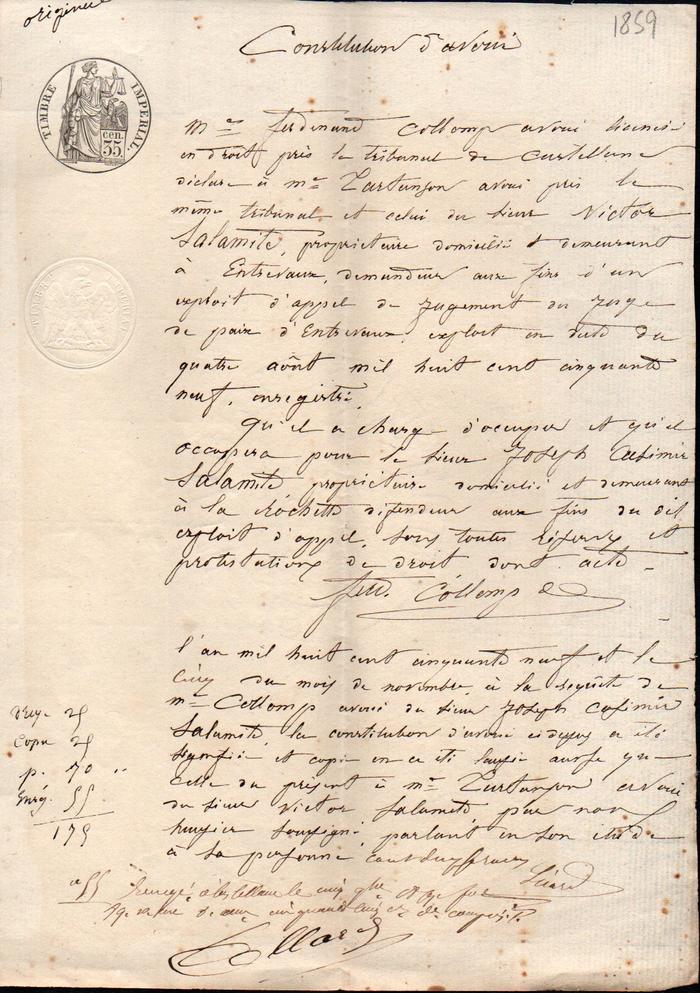 original
1859
Constitution d'avoué
TIMBRE IMPERIAL
35 cen.
Me Ferdinand Collomp avoué licencié
en droit près le tribunal de Castellane
déclare à me Tartanson avoué près le
même tribunal et celui du sieur Victor
Salamite, propriétaire domicilié & demeurant
à Entrevaux, demandeur aux fins d'un
exploit d'appel de jugement du juge
de paix d'Entrevaux, exploit en date du
quatre août mil huit cent cinquante
neuf, enregistré.
qu'il a charge d'occuper et qu'il
occupera pour le sieur Joseph Casimir
Salamite propriétaire domicilié et demeurant
à la Rochette défendeur aux fins du dit
exploit d'appel, sous toutes réserves et
protestations de droit dont acte
Ferd. Collomp
l'an mil huit cent cinquante neuf et le
cinq du mois de novembre, à la requête de
me Collomp avoué du sieur Joseph Casimir
Salamite, la constitution d'avoué cidessus a été
signifiée et copie en a été laissée ainsi que
celle du présent à me Tartanson avoué
du sieur Victor Salamite, par nous
huissier soussigné, parlant en son étude
à sa personne
25
Copie 25
p. 70
Enreg. 55
175
55
à Castellane le cinq
cinquante cinq